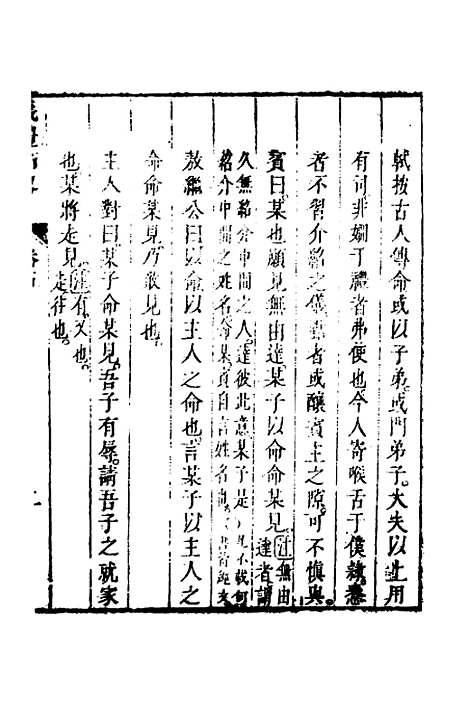 軾按古人傳命或以子弟或門弟子大夫以上用
有司非嫺于禮者弗便也今人寄喉舌于僕隸愚
者不習介紹之儀黠者或釀賓主之隙可不慎與
賓曰某也願見無由達某子以命命某見注無由達者謂
久無紹介中間之人達彼此意某子是
紹介中間之姓名命某賓自言姓名也
敖繼公曰以命以主人之命也言某子以主人之
命命某見所敢見也
主人對曰某子命某見吾子有辱請吾子之就家
也某將走見注有又也走往也